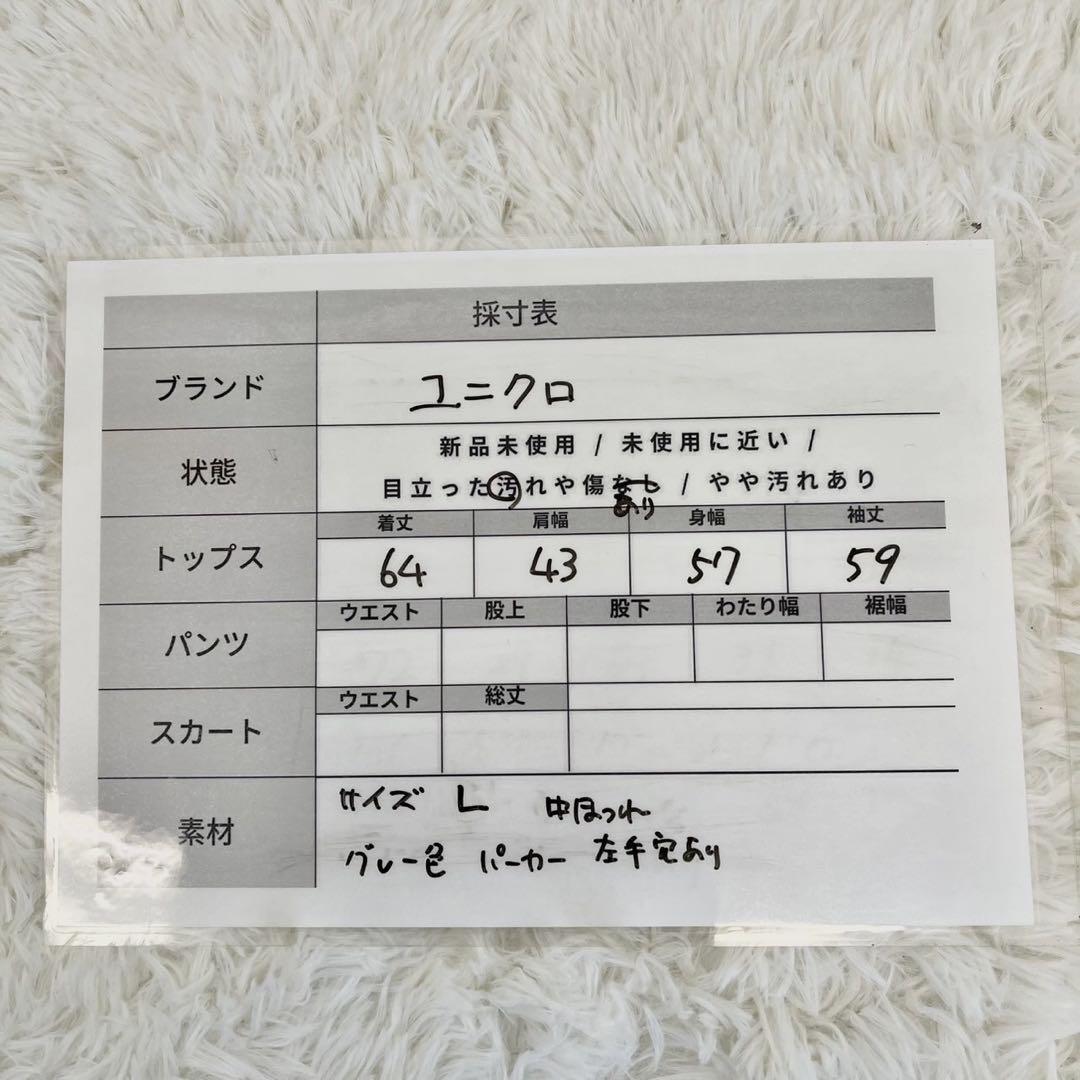 採寸表
ブランド ユニクロ
新品未使用 / 未使用に近い /
状態
目立った汚れや傷なし / やや汚れあり
あり
着丈 肩幅 身幅 袖丈
トップス 64 43 57 59
ウエスト 股上 股下 わたり幅 裾幅
パンツ
ウエスト 総丈
スカート
サイズ L 中ほつれ
素材
グレー色 パーカー 左手穴あり